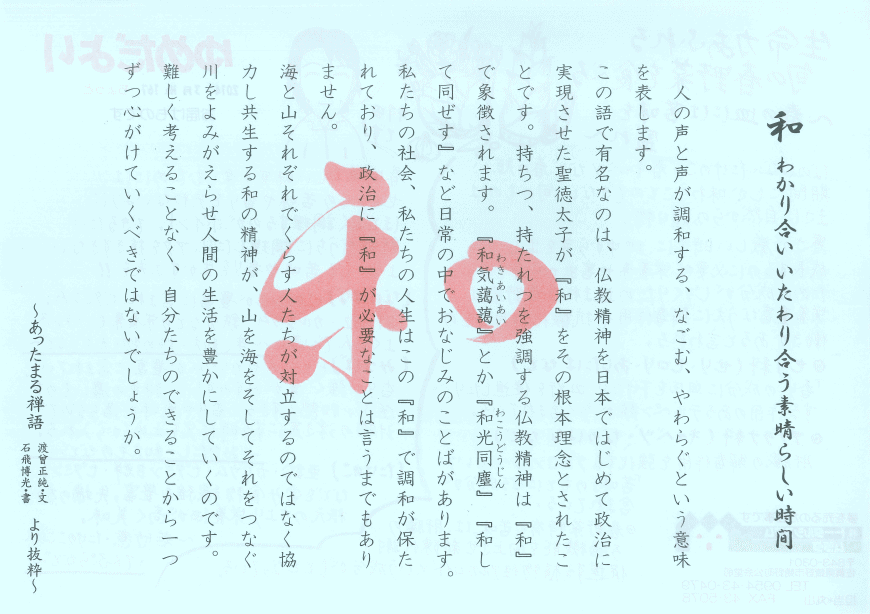 和　わかり合いいたわり合う素晴らしい時間
人の声と声が調和する、なごむ、やわらぐという意味
を表します。
この語で有名なのは、仏教精神を日本ではじめて政治に
実現させた聖徳太子が『和』をその根本理念とされたこ
とです。持ちつ、持たれつを強調する仏教精神は『和』
で象徴されます。『和気藹藹』とか『和光同塵』『和し
わきあいあい
わこうどうじん
て同ぜす』など日常の中でおなじみのことばがあります。
私たちの社会、私たちの人生はこの『和』で調和が保た
れており、政治に『和』が必要なことは言うまでもあり
ません。
海と山それぞれでくらす人たちが対立するのではなく協
力し共生する和の精神が、山を海をそしてそれをつなぐ
川をよみがえらせ人間の生活を豊かにしていくのです。
難しく考えることなく、自分たちのできることから一つ
ずつ心がけていくべきではないでしょうか。
～あったまる禅語　渡曾正純・文　石飛博光・書　より抜粋～
和